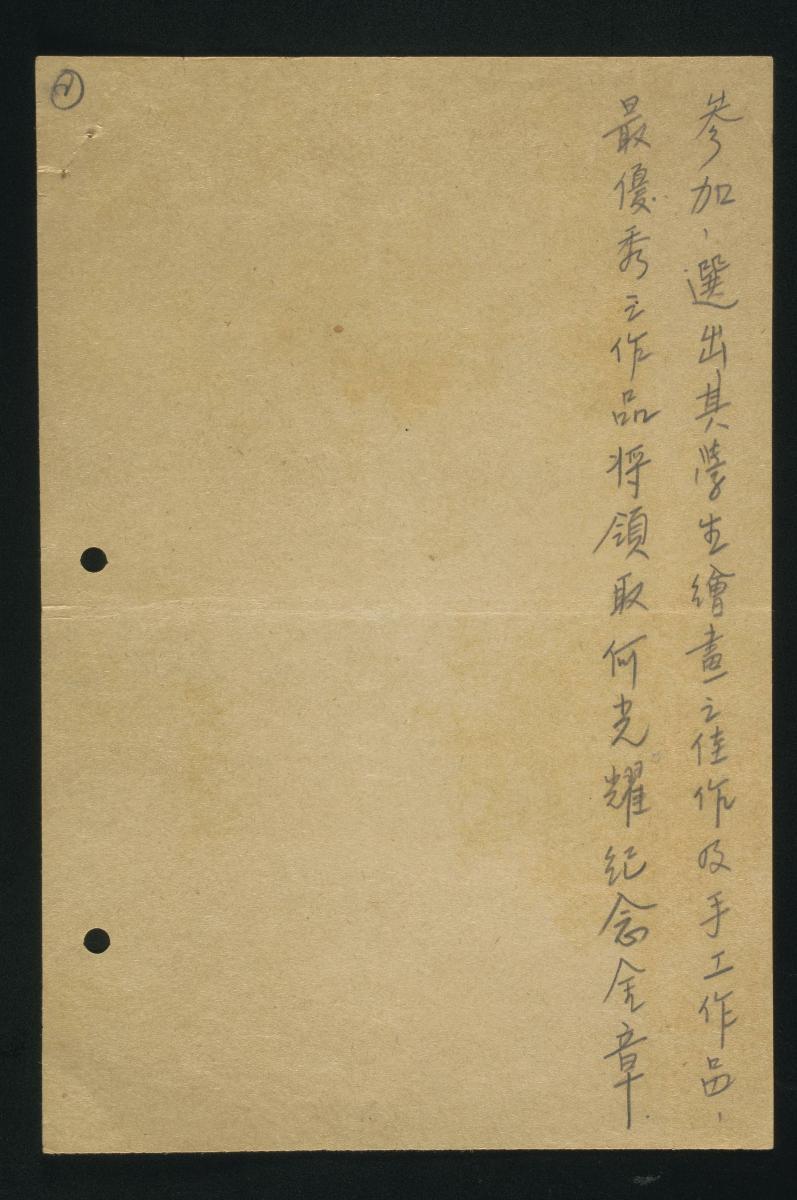 參加，選出其學生繪畫之佳作及手工作品，
最優秀之作品將領取何光耀紀念金章.